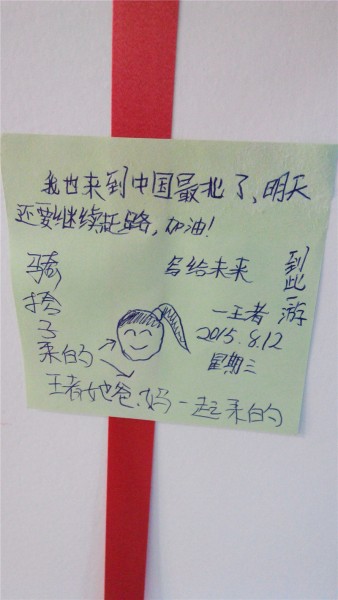 我也来到中国最北了、明天
还要继续赶路,加油!
骑
来的
写给未来
一王者
2015.8.12
星期三
到此一游
王者她爸.妈一起来的